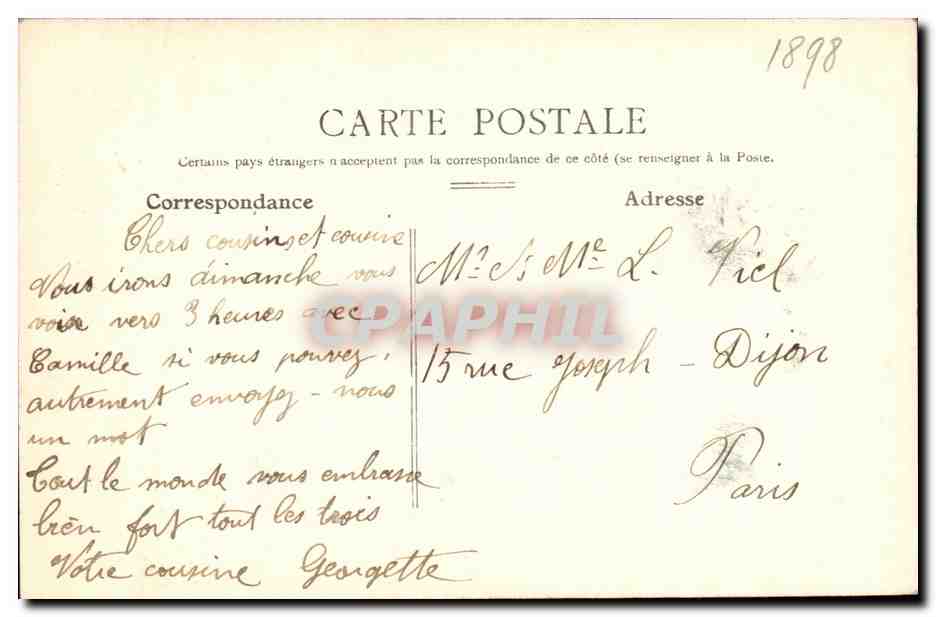 1898
CARTE POSTALE
Certains pays étrangers n'acceptent pas la correspondance de ce côté (se renseigner à la Poste.
Correspondance
Chers cousins et cousine
Nous irons dimanche vous
voire vers 3 heures avec
Camille si vous pouvez,
autrement envoyez-nous
un mot
Tout le monde vous embrasse
bien fort tout les trois
Votre cousine Georgette
Adresse
Mr & Me L. Viel
15 rue Joseph - Dijon
Paris
CPAPHIL